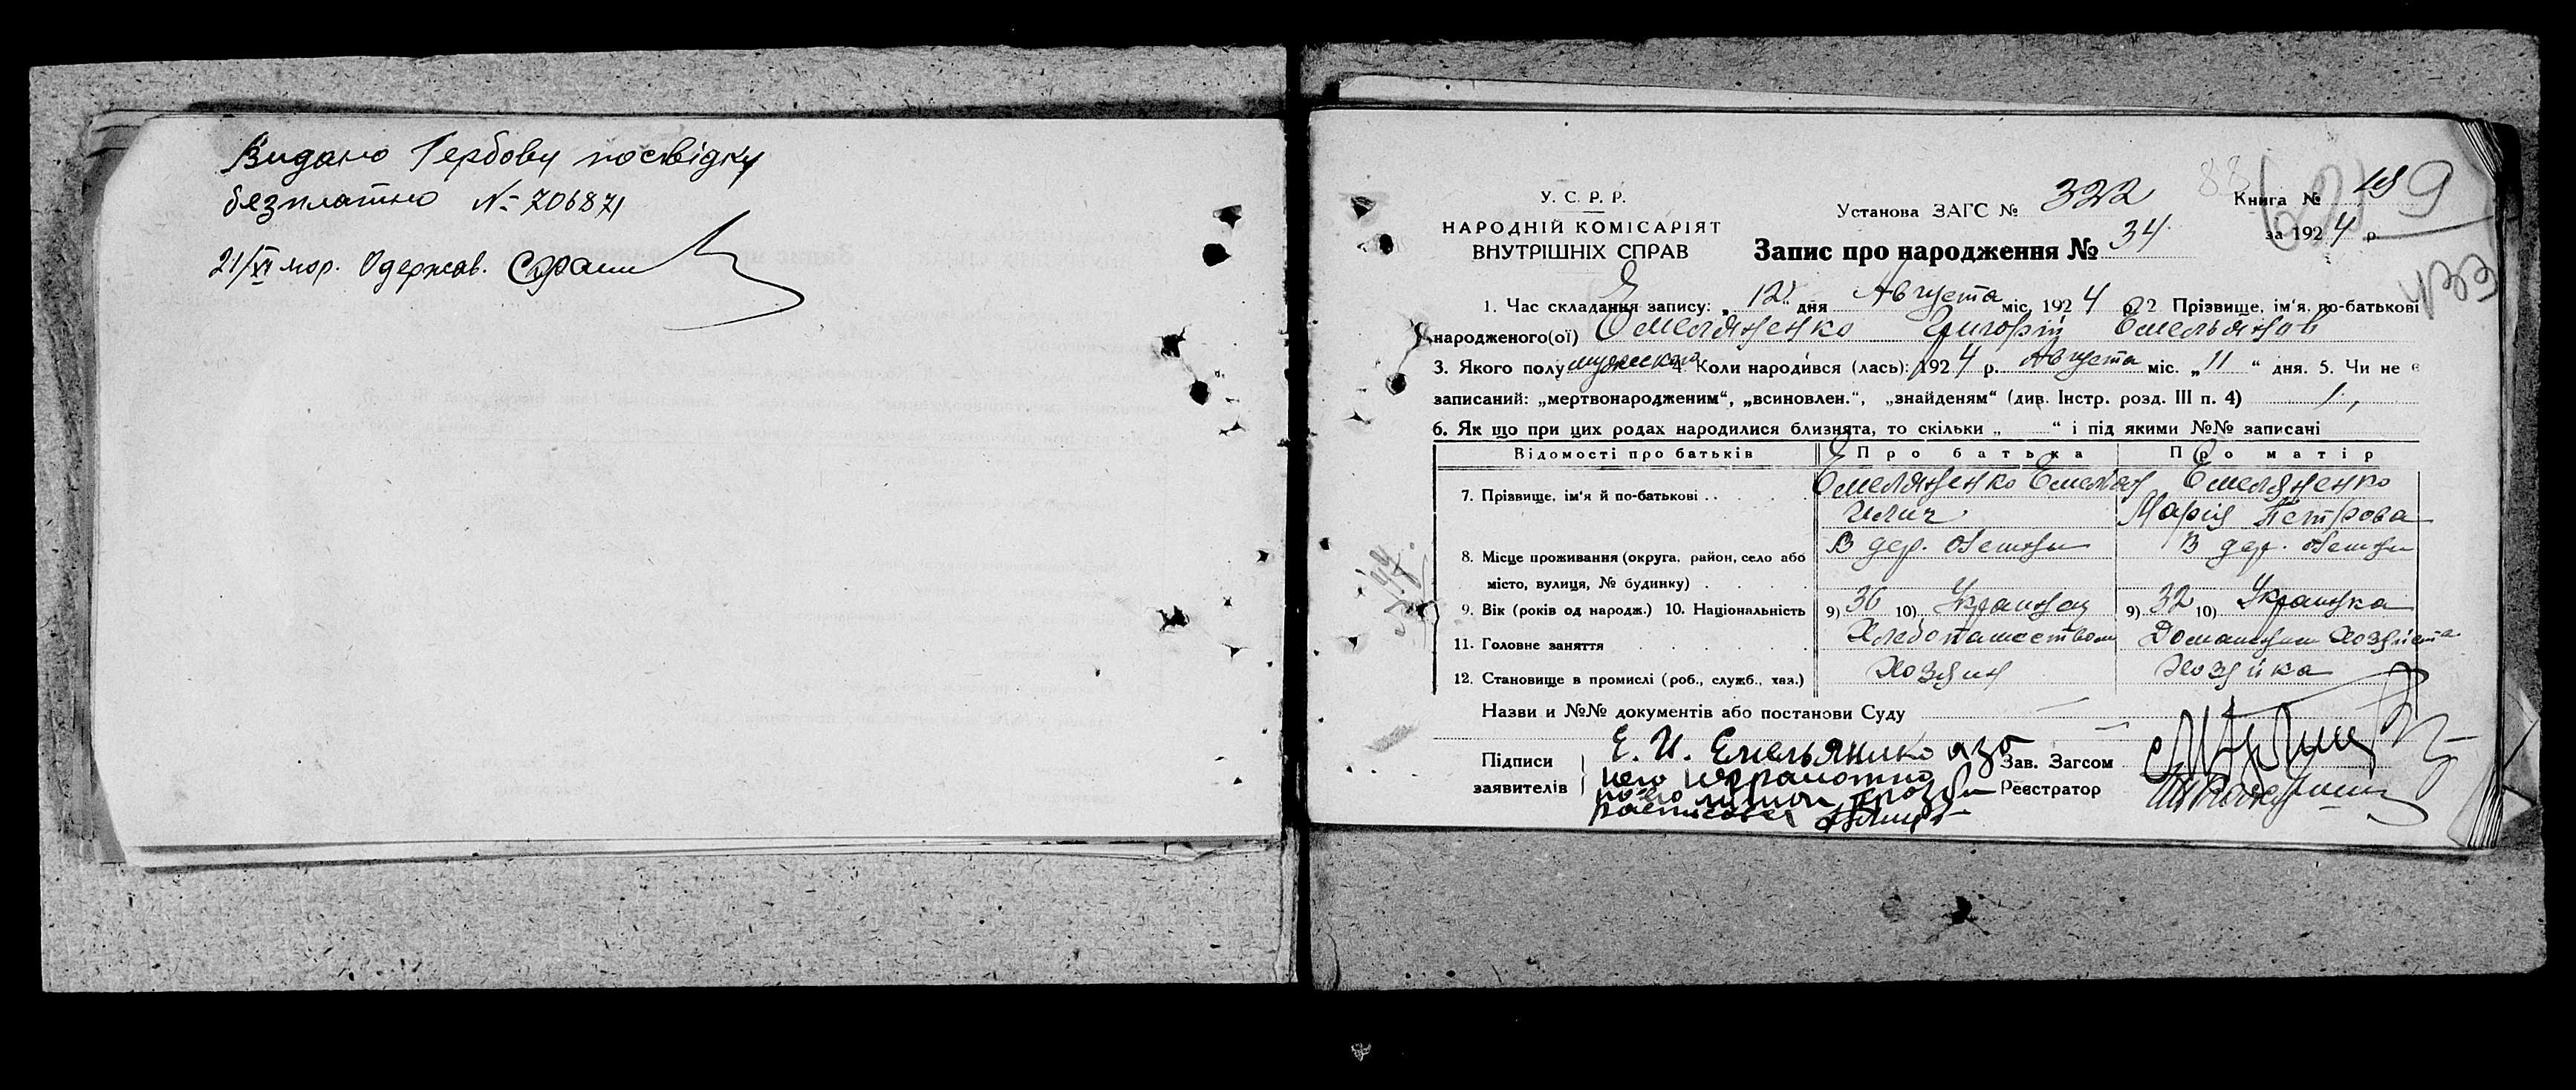 Видано Гербову посвідку
безплатно № 706871
21/XI мор. Одержав.
У. С. Р. Р.
НАРОДНІЙ КОМІСАРІЯТ
ВНУТРІШНІХ СПРАВ
Установа ЗАГС № 322
Книга №
за 1924 р.
Запис про народження № 34
9
433
1. Час складання запису: „12“ дня Августа міс. 1924 р. 2 Прізвище, ім'я, по-батькові
народженого(ої) Емеляненко Григорій Емельянов
3. Якого полу мужеского 4. Коли народився (лась): 1924 р. Августа міс. „11“ дня. 5. Чи не є
записаний: „мертвонародженим“, „всиновлен.“, „знайденям“ (див. Інстр. розд. III п. 4)
6. Як що при цих родах народилися близнята, то скільки „ “ і під якими №№ записані
Відомості про батьків Про батька Про матір
7. Прізвище, ім'я й по-батькові . . . . Емеляненко Емелян Емеляненко
Илич Мария Петрова
8. Місце проживання (округа, район, село або В дер. В дер.
місто, вулиця, № будинку) . . . .
9. Вік (років од народж.) 10. Національність 9) 36 10) Украинец 9) 32 10) Украинка
11. Головне заняття . . . . . . Хлебопашеством Домашним
12. Становище в промислі (роб., служб., хаз.) Хозяин Хозяйка
Назви и №№ документів або постанови Суду
Підписи Е. И. Емельяненко а за Зав. Загсом
заявителів него неграмотно Реєстратор
по его личной прозьби
расписался